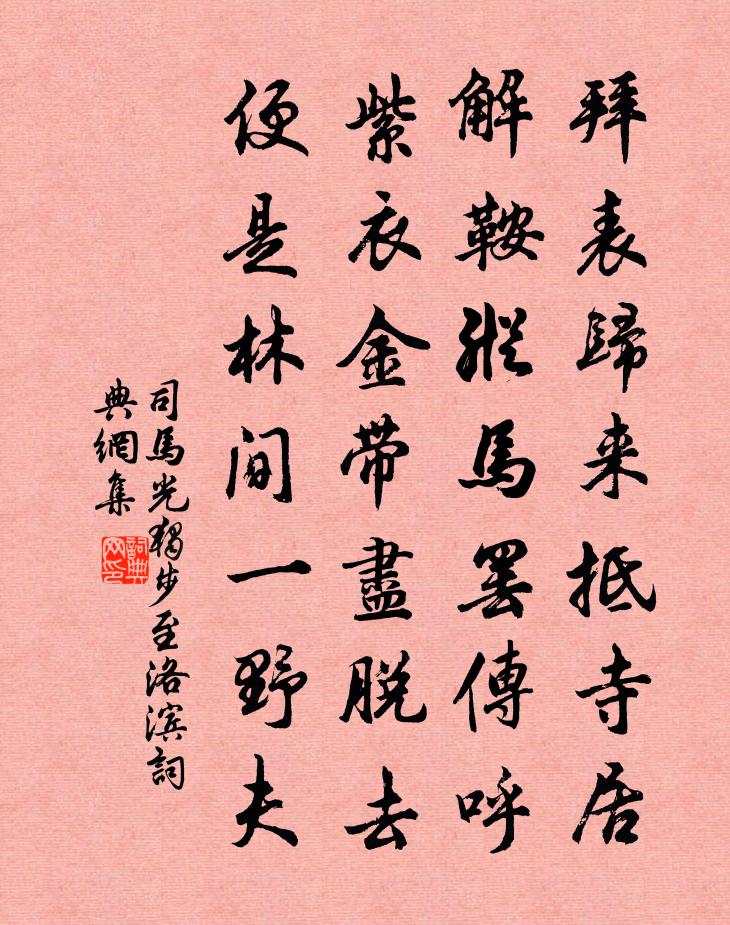 拜表歸来抵寺居
解鞍縱馬罷傳呼
紫衣金带盡脱去
便是林間一野夫
司馬光獨步至洛滨詞
典網集
詞典
网印